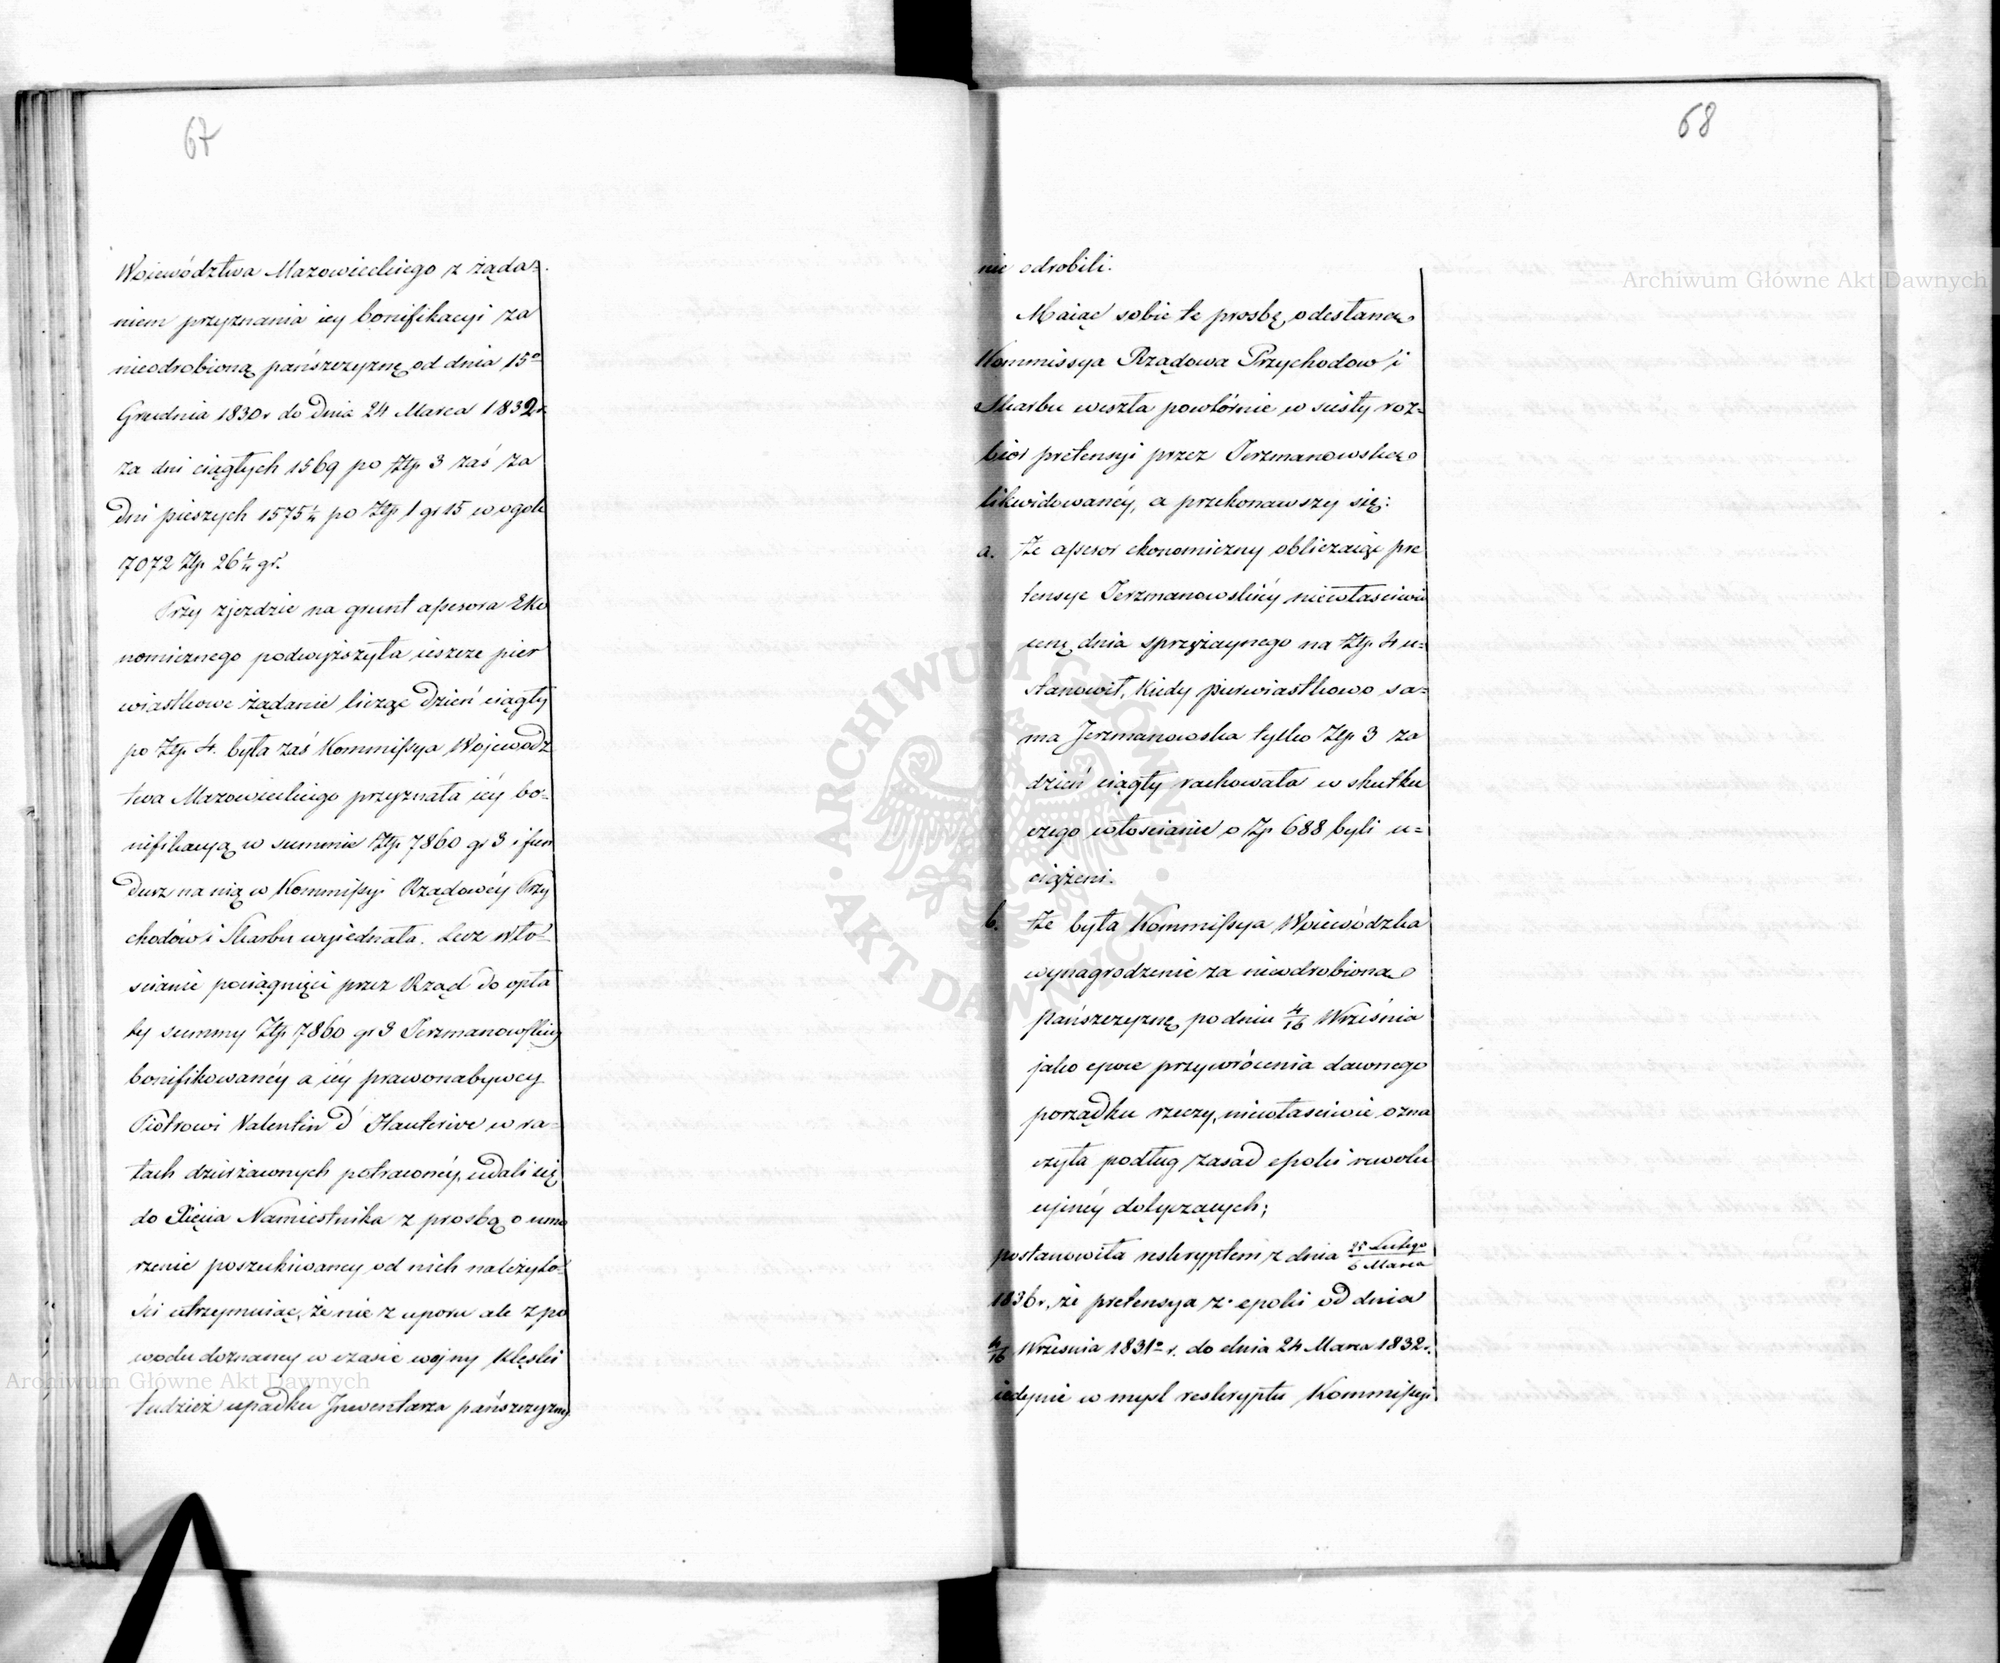 67
Woiewództwa Mazowieckiego z żąda=
niem przyznania iey bonifikacyi za
nieodrobioną pańszczyznę od dnia 15º
Grudnia 1830 r do Dnia 24 Marca 1832 r.
za dni ciągłych 1569 po Złp. 3 zaś za
Dni pieszych 1575 1/4 po Złp 1 gr 15 w ogole
7072 Złp 26 1/4 gr.
Przy zjezdzie na grunt assesora Eko
nomicznego podwyższyła ieszcze pier
wiastkowe żądanie licząc Dzień ciągły
po Złp. 4. była zaś Kommissya Wojewodz
twa Mazowieckiego przyznała iéy bo-
nifikacyą w summie Złp. 7860 gr 3 i fun
dusz na nią w Kommissyi Rządowéy Przy
chodów i Skarbu wyiednała. Lecz Wło-
scianie pociągnięci przez Rząd do opła
ty summy Złp. 7860 gr 3 Jerzmanowskiey
bonifikowanéy a iéy prawonabywcy
Piotrowi Valentin D' Hauterive w ra-
tach dzierżawnych potraconéy, udali się
do Xięcia Namiestnika z prosbą o umo
rzenie poszukiwaney od nich należyto-
ści utrzymuiąc, że nie z uporu ale z po
wodu doznaney w czasie wojny Klęski
tudzież upadku Jnwentarza pańszczyzny
68
nie odrobili.
Maiąc sobie te prosbę odesłaną
Kommissya Rządowa Przychodow i
Skarbu weszła powtórnie w scisły roz=
bior pretensyi przez Jerzmanowską
likwidowanéy, a przekonawszy się:
a. Że assesor ekonomiczny obliczaiąc pre
tensye Jerzmanowskiéy niewłasciwie
cenę dnia sprzężaynego na Złp. 4 u=
stanowił, Kiedy pierwiastkowo sa=
ma Jerzmanowska tylko Złp 3 za
dzień ciągły rachowała w skutku
czego włoscianie o Zp 688 byli u=
ciążeni.
b. Że była Kommissya Woiewódzka
wynagrodzenie za nieodrobioną
Pańszczyznę po dniu 4/16 Września
jako epoce przywrócenia dawnego
porządku rzeczy, niewłasciwie ozna
czyła podług zasad epoki rewolu
cyinéy dotyczących;
postanowiła reskryptem z dnia 25 Lutego/6 Marca
1836 r, że pretensya z epoki od dnia
4/16 Wrzesnia 1831º r. do dnia 24 Marca 1832 r.
iedynie w mysl reskryptu Kommissyi
Archiwum Główne Akt Dawnych
Archiwum Główne Akt Dawnych
ARCHIWUM GŁÓWNE
AKT DAWNYCH